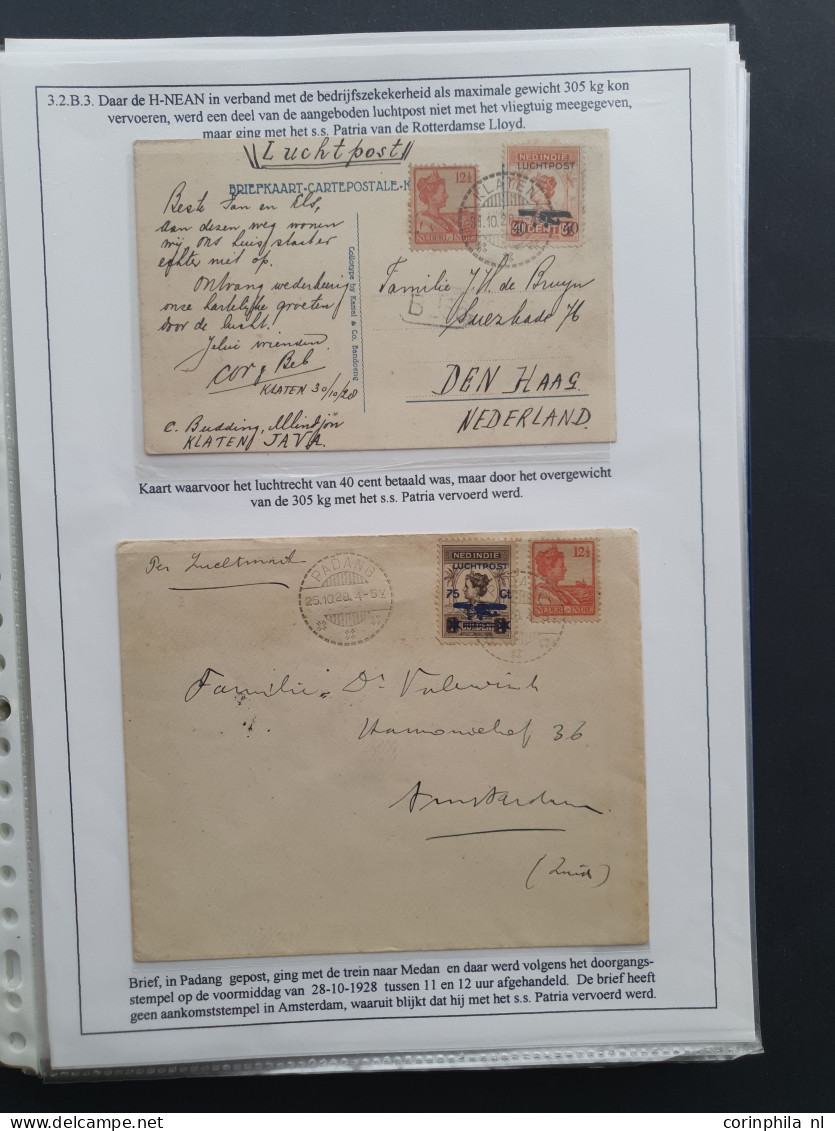 3.2.B.3. Daar de H-NEAN in verband met de bedrijfszekekerheid als maximale gewicht 305 kg kon
vervoeren, werd een deel van de aangeboden luchtpost niet met het vliegtuig meegegeven,
maar ging met het s.s. Patria van de Rotterdamse Lloyd.
Luchtpost
BRIEFKAART-CARTEPOSTALE-K
12½
NEDERL-INDIË
NED INDIE
LUCHTPOST
40 CENT 40
KLATEN
10.28
Beste Jan en Els,
aan dezen weg wonen
wij ons huis staat er
echter niet op.
Ontvang wederkeerig
onze hartelijke groeten
door de lucht.
Jelui vrienden
Cor & Beb
KLATEN 30/10/28
C. Budding,
KLATEN JAVA.
Collotype by Kamal & Co. Bandoeng
Familie J. H. de Bruyn
Suezkade 76
DEN HAAG
NEDERLAND.
Kaart waarvoor het luchtrecht van 40 cent betaald was, maar door het overgewicht
van de 305 kg met het s.s. Patria vervoerd werd.
Per Luchtmail
PADANG
25.10.28. 4-5V
NED INDIE
LUCHTPOST
75 Ct
12½
NEDERL-INDIË
Familie Dr
Harmoniehof 36
Amsterdam
(Zuid)
Brief, in Padang gepost, ging met de trein naar Medan en daar werd volgens het doorgangs-
stempel op de voormiddag van 28-10-1928 tussen 11 en 12 uur afgehandeld. De brief heeft
geen aankomststempel in Amsterdam, waaruit blijkt dat hij met het s.s. Patria vervoerd werd.
corinphila nl